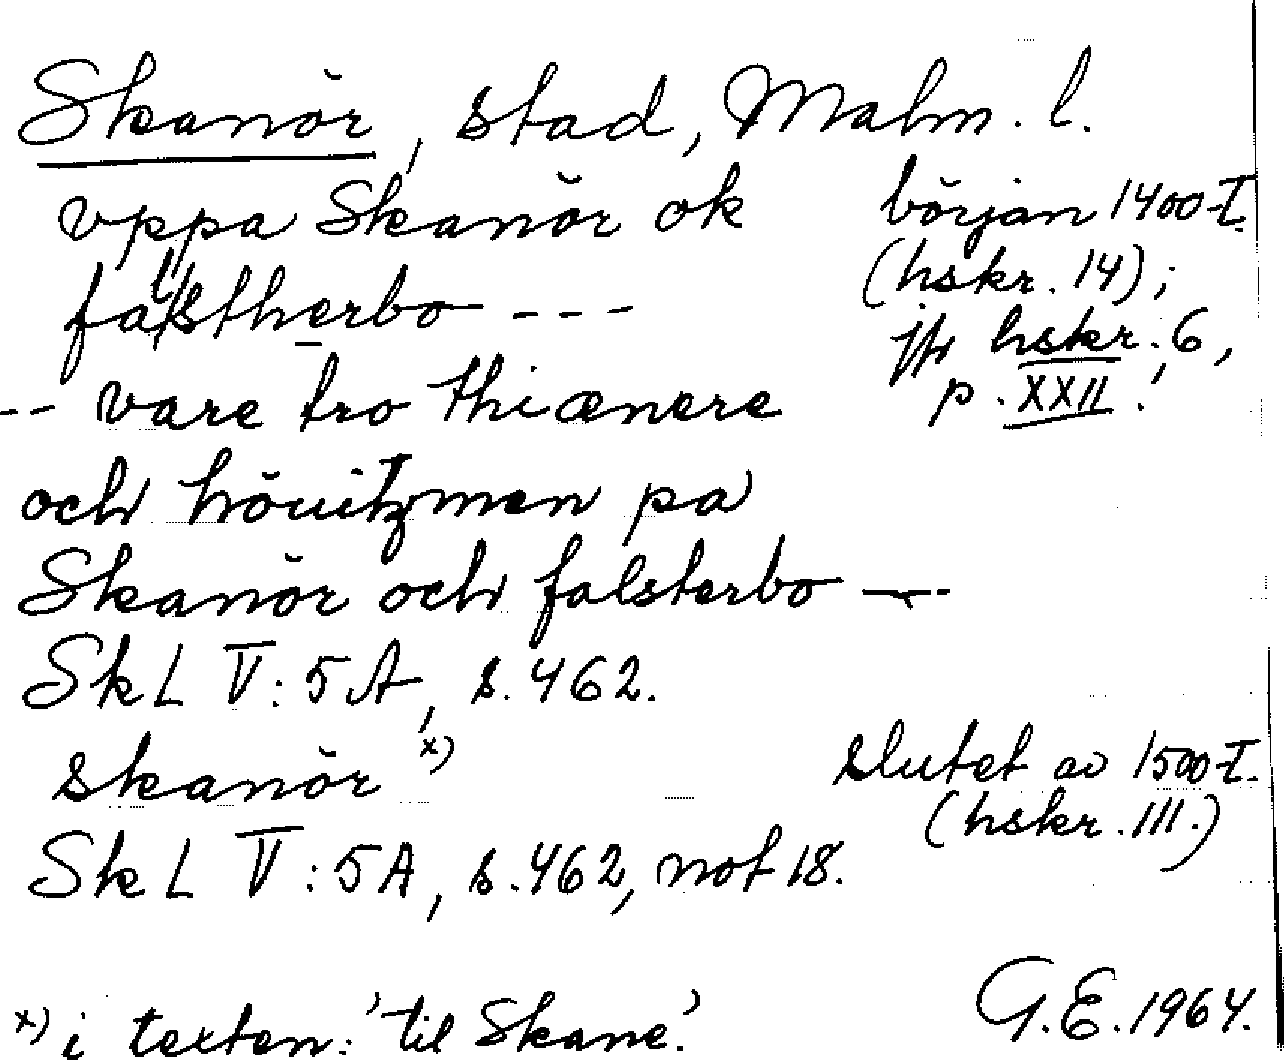 Skanör, stad, Malm. l.
vppa Skanör ok början 1400-T.
falstherbo --- (hskr. 14);
jfr hskr. 6,
-- vare tro thiænere p. XXII.
och höuitzmen pa
Skanör och falsterbo ---
SkL V: 5A, s. 462.
skanör x) slutet av 1500-T.
(hskr. III.)
SkL V: 5A, s. 462, not 18.
x) i texten: 'til Skane.' G.E. 1964.